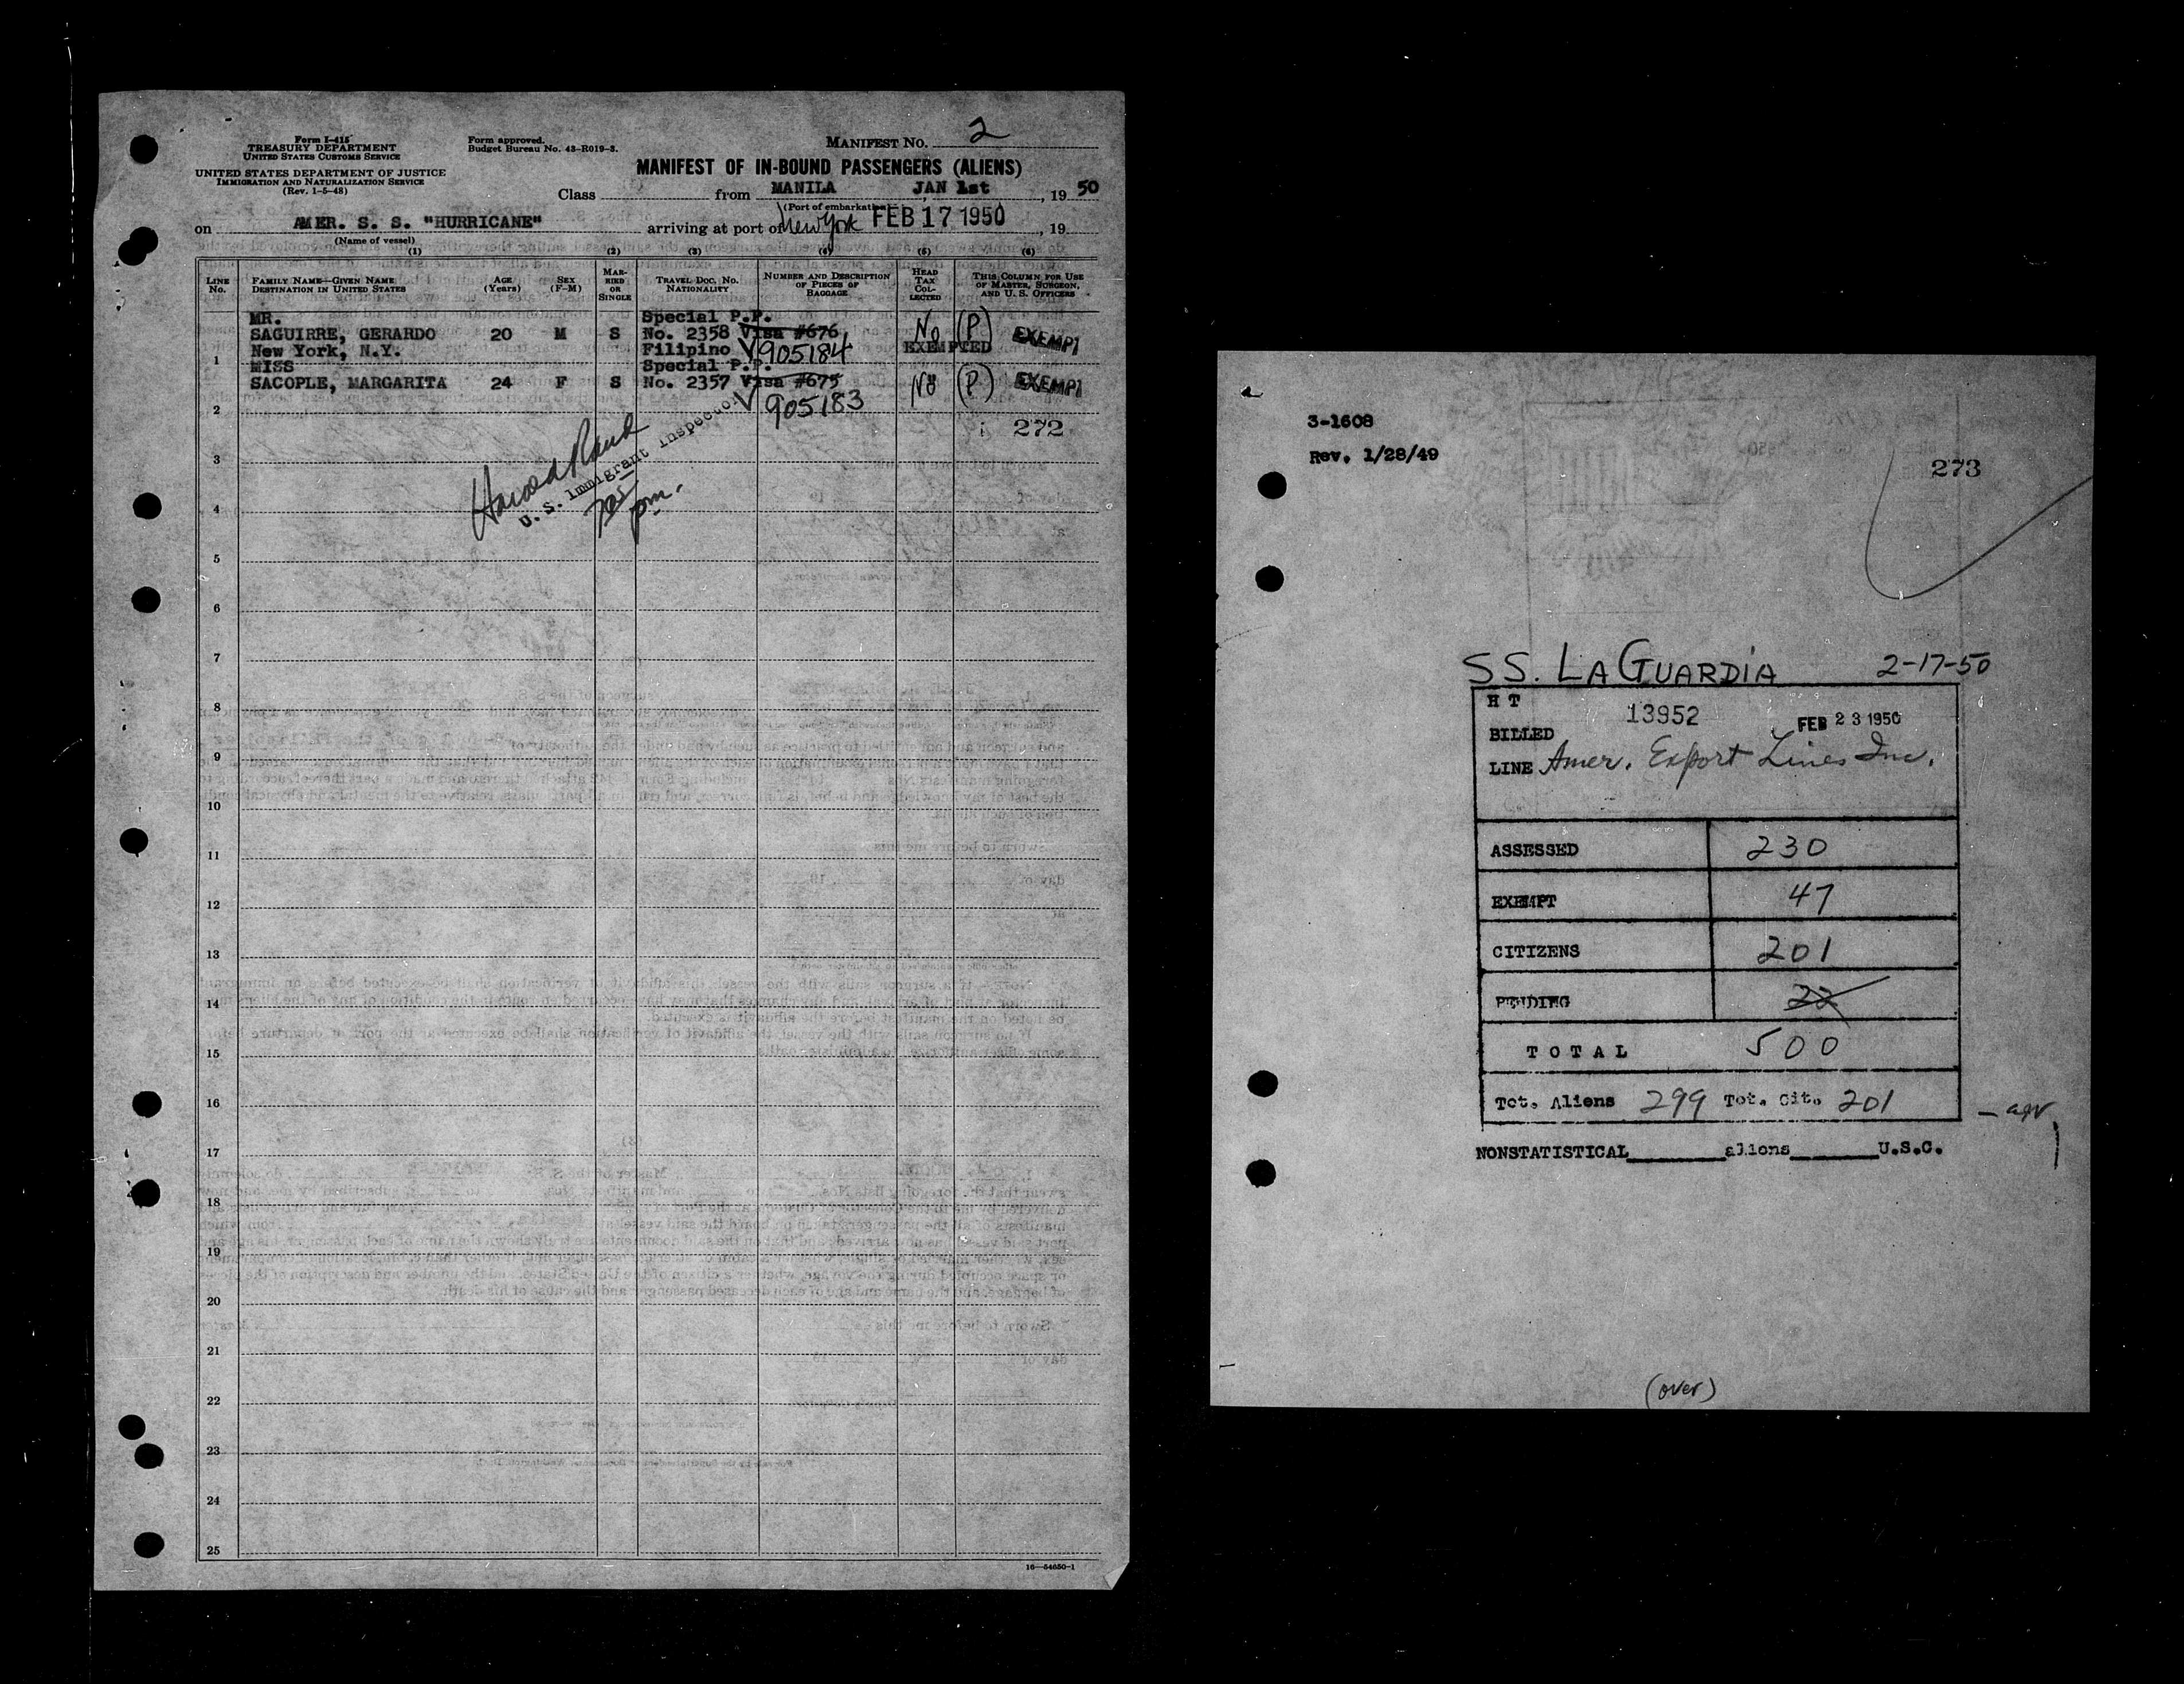 Form I-415
TREASURY DEPARTMENT
UNITED STATES CUSTOMS SERVICE
UNITED STATES DEPARTMENT OF JUSTICE
IMMIGRATION AND NATURALIZATION SERVICE
(Rev. 1-5-48)
Form approved.
Budget Bureau No. 43-R019-3.
MANIFEST NO. 2
MANIFEST OF IN-BOUND PASSENGERS (ALIENS)
Class from MANILA JAN 1st, 19 50
(Port of embarkation)
on AMER. S. S. "HURRICANE" arriving at port of New York FEB 17 1950, 19
(Name of vessel)
(1) (2) (3) (4) (5) (6)
LINE No. FAMILY NAME—GIVEN NAME DESTINATION IN UNITED STATES AGE (Years) SEX (F-M) MARRIED OR SINGLE TRAVEL DOC. NO. NATIONALITY NUMBER AND DESCRIPTION OF PIECES OF BAGGAGE HEAD TAX COLLECTED THIS COLUMN FOR USE OF MASTER, SURGEON, AND U. S. OFFICERS
MR. Special P.P.
SAGUIRRE, GERARDO 20 M S No. 2358 Visa #676 No (P) EXEMPT
1 New York, N.Y. Filipino V 905184 EXEMPTED
MISS Special P.P.
SACOPLE, MARGARITA 24 F S No. 2357 Visa #675 No (P) EXEMPT
2 V 905183
272
U. S. Immigrant Inspector
pm.
3
4
5
6
7
8
9
10
11
12
13
14
15
16
17
18
19
20
21
22
23
24
25
16—54650-1
3-1608
Rev. 1/28/49
273
SS. LAGUARDIA 2-17-50
H T
13952 FEB 23 1950
BILLED
LINE Amer. Export Lines Inc.
ASSESSED 230
EXEMPT 47
CITIZENS 201
PENDING 22
TOTAL 500
Tot. Aliens 299 Tot. Cit. 201
NONSTATISTICAL aliens U.S.C.
(over)